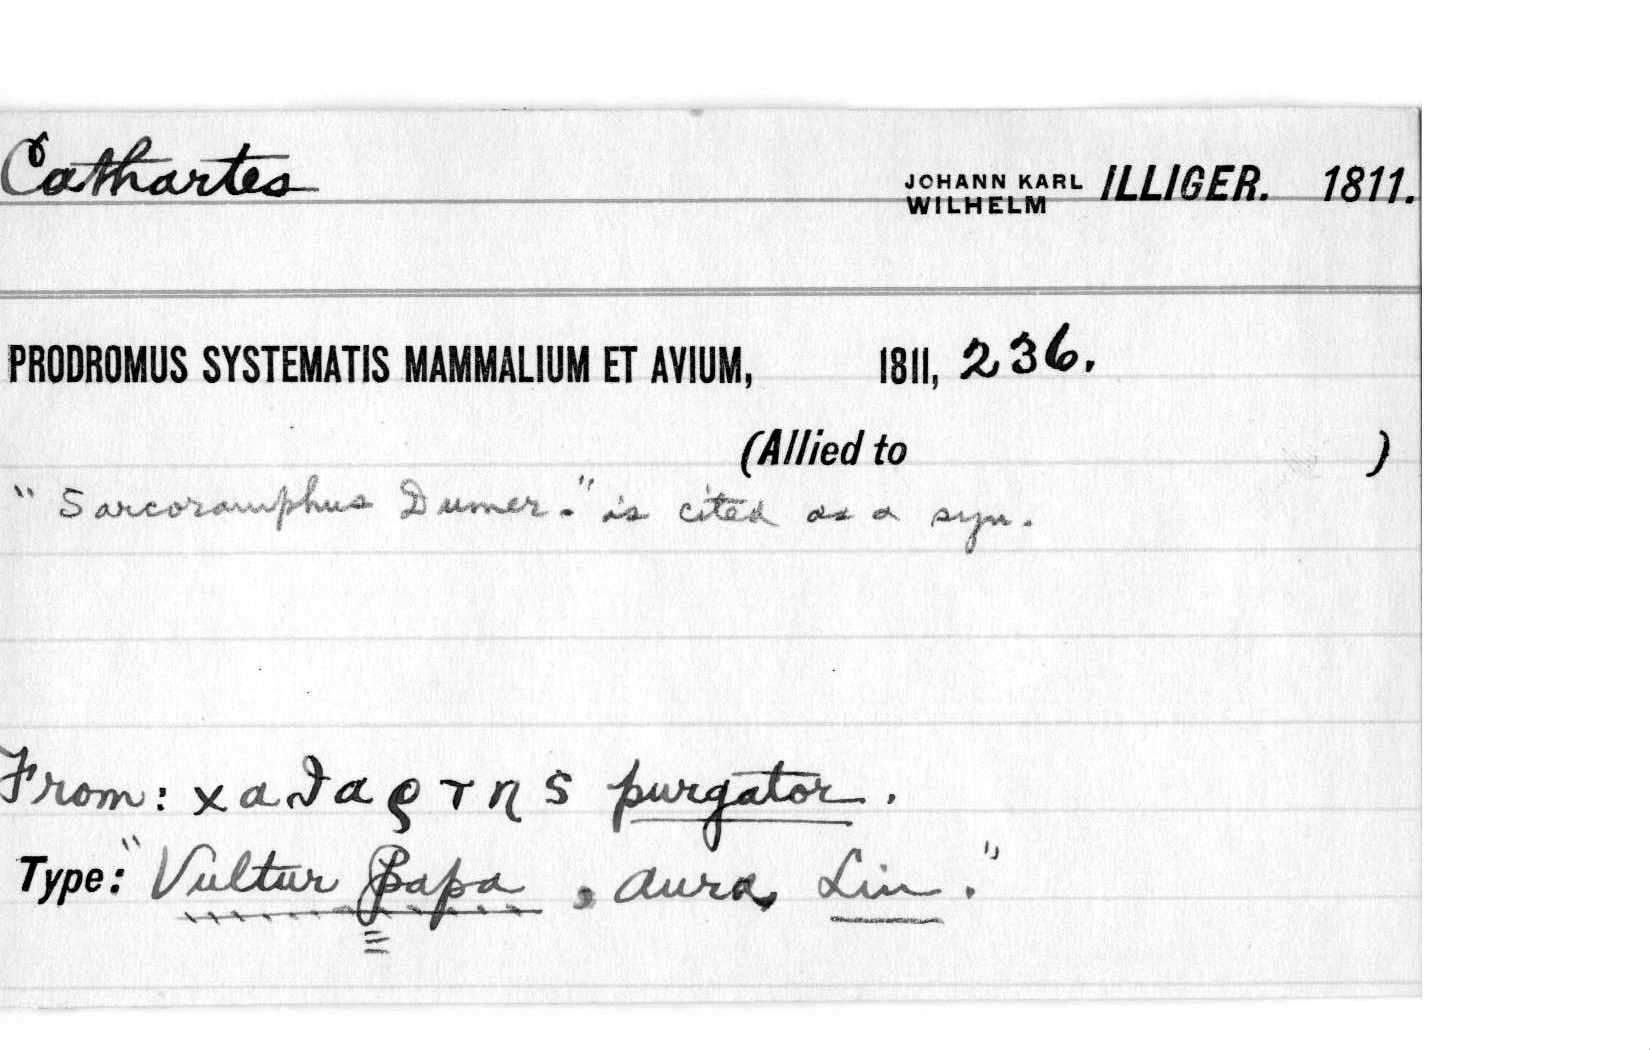 Cathartes JOHANN KARL WILHELM ILLIGER. 1811.
PRODROMUS SYSTEMATIS MAMMALIUM ET AVIUM, 1811, 236.
(Allied to )
"Sarcoramphus Dumer." is cited as a syn.
From: χαϑαρτης purgator.
Type: "Vultur Papa, aura, Lin."